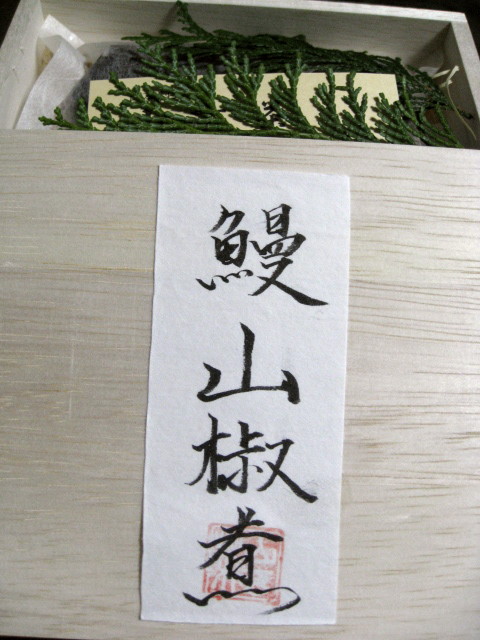 鰻山椒煮